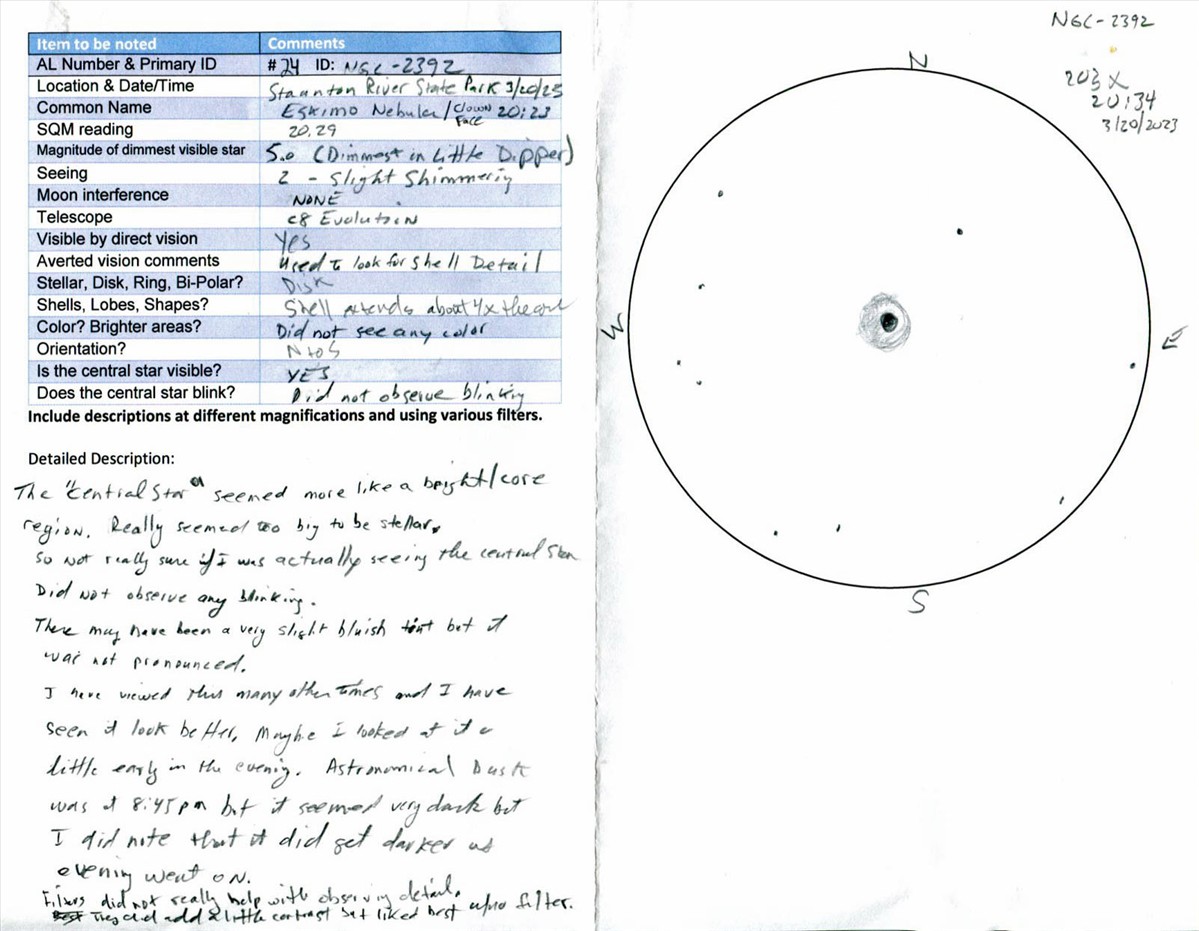 Item to be noted Comments
AL Number & Primary ID #24 ID: NGC-2392
Location & Date/Time Staunton River State Park 3/20/23
Common Name Eskimo Nebula/Clown Face 20:23
SQM reading 20.29
Magnitude of dimmest visible star 5.0 (Dimmest in Little Dipper)
Seeing 2 - Slight Shimmering
Moon interference NONE
Telescope C8 Evolution
Visible by direct vision Yes
Averted vision comments Used to look for shell Detail
Stellar, Disk, Ring, Bi-Polar? Disk
Shells, Lobes, Shapes? Shell extends about 4x the
Color? Brighter areas? Did not see any color
Orientation? N to S
Is the central star visible? YES
Does the central star blink? Did not observe blinking
Include descriptions at different magnifications and using various filters.
Detailed Description:
The "Central Star" seemed more like a bright/core
region. Really seemed too big to be stellar.
So not really sure if I was actually seeing the central star
Did not observe any blinking.
There may have been a very slight bluish tint but it
was not pronounced.
I have viewed this many other times and I have
seen it look better, Maybe I looked at it a
little early in the evening. Astronomical Dusk
was at 8:45pm but it seemed very dark but
I did note that it did get darker as
evening went on.
Filters did not really help with observing detail.
They did add a little contrast but liked best w/no filter.
NGC-2392
203x
20:34
3/20/2023
N
W
E
S